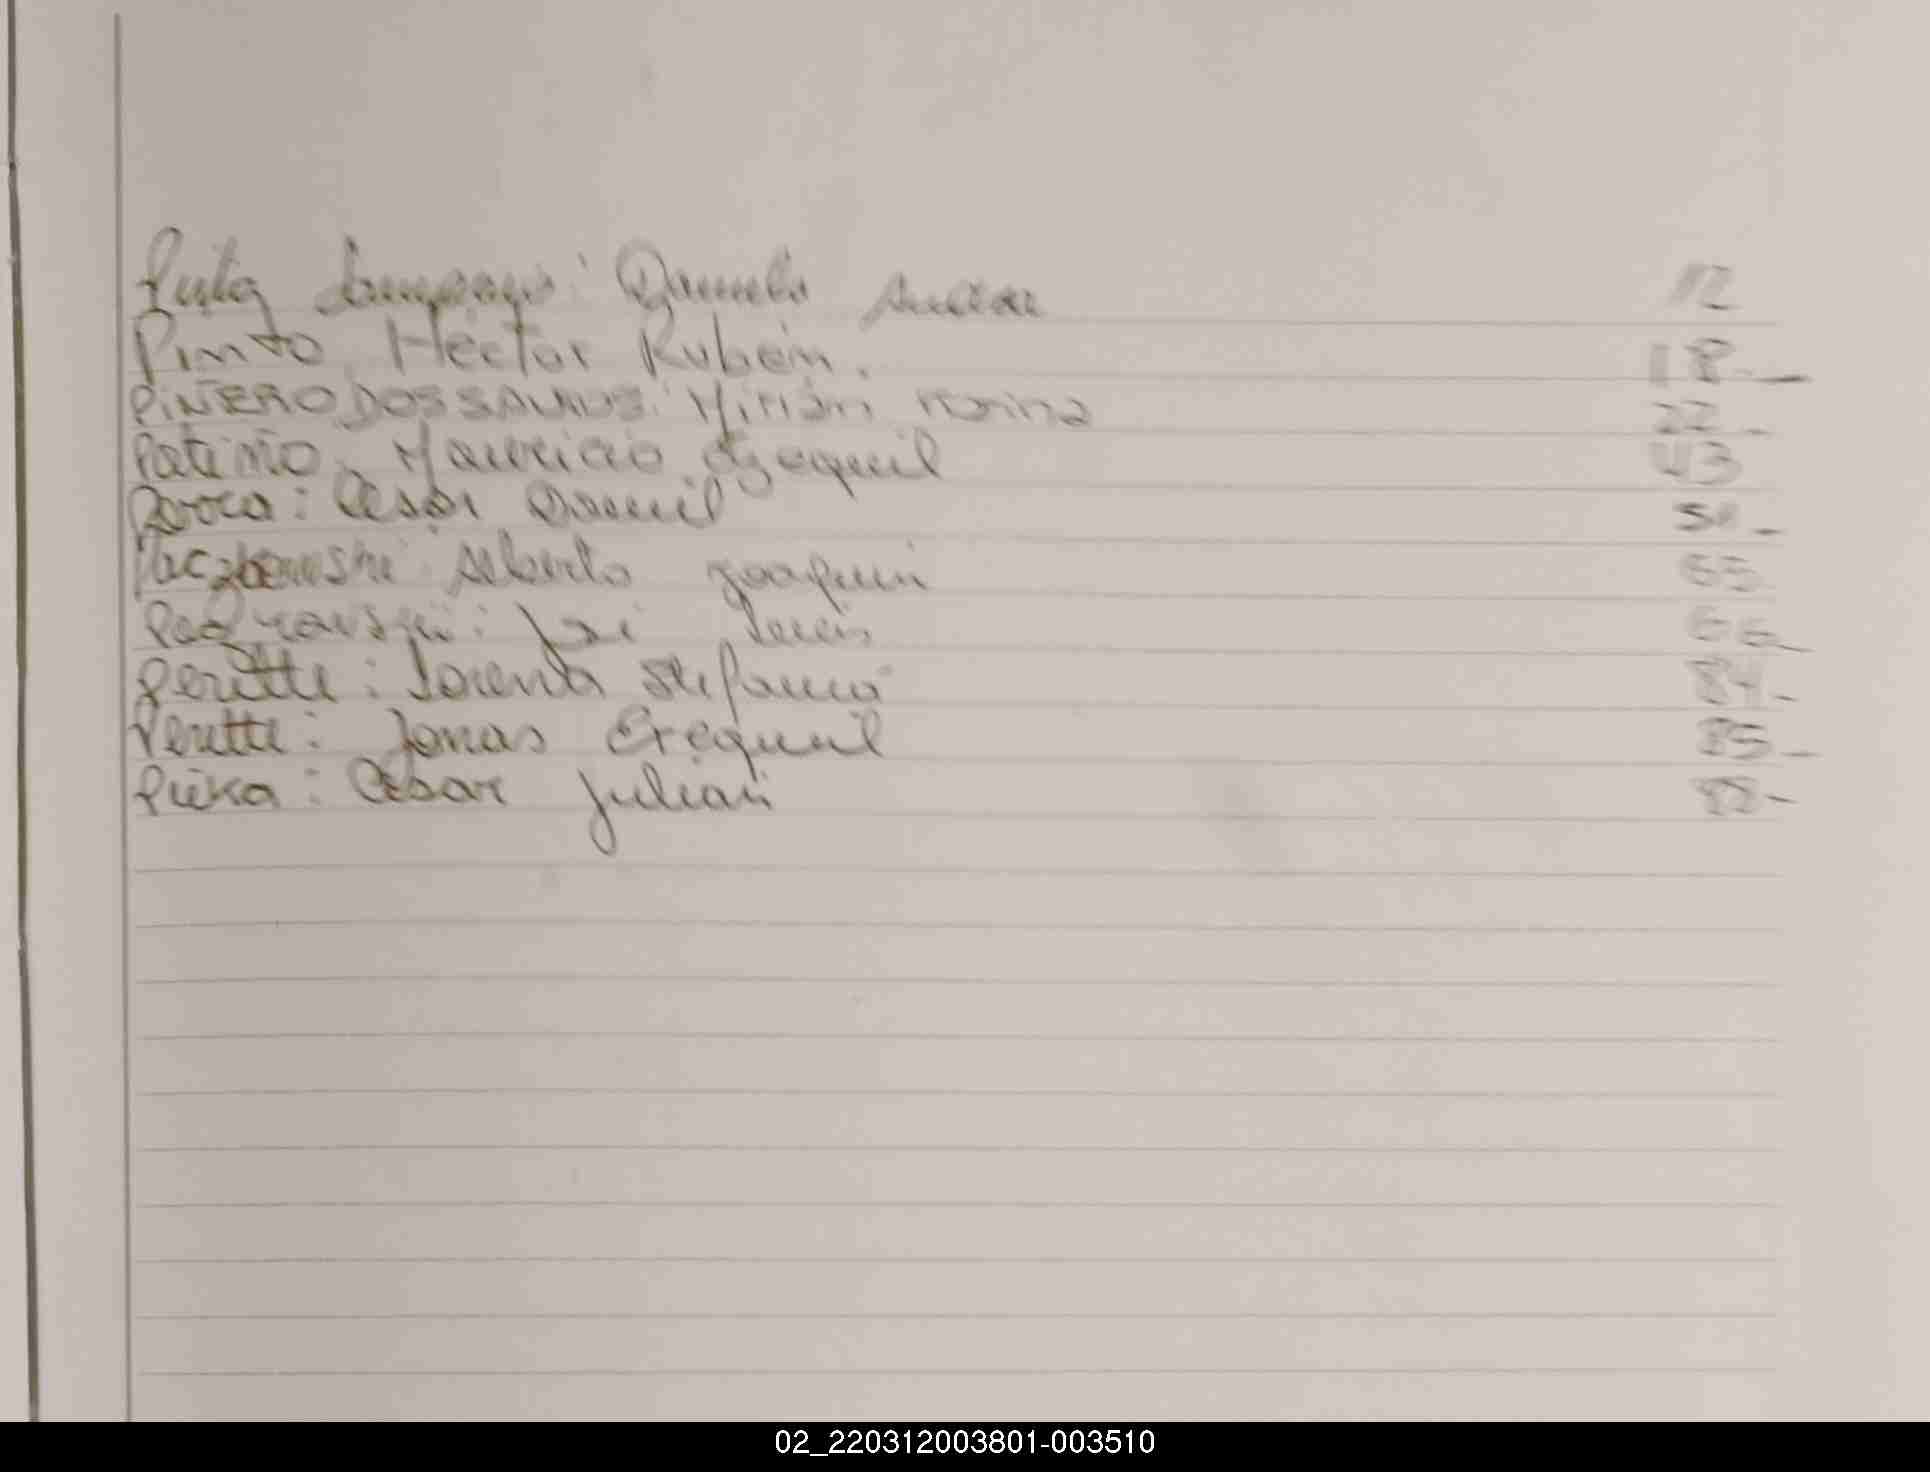 Daniela 12
Pinto, Héctor Rubén. 18.-
PIÑERO DOS SANTOS: Mirian Norina 22-
Patiño, Mauricio Ezequiel 43
Porra: Cesar Daniel 51-
Alberto Joaquin 65
Luis 66-
Perette: Lorena Stefania 84-
Perette: Jonas Exequiel 85-
Piéka: Cesar Julian 88-
02_220312003801-003510